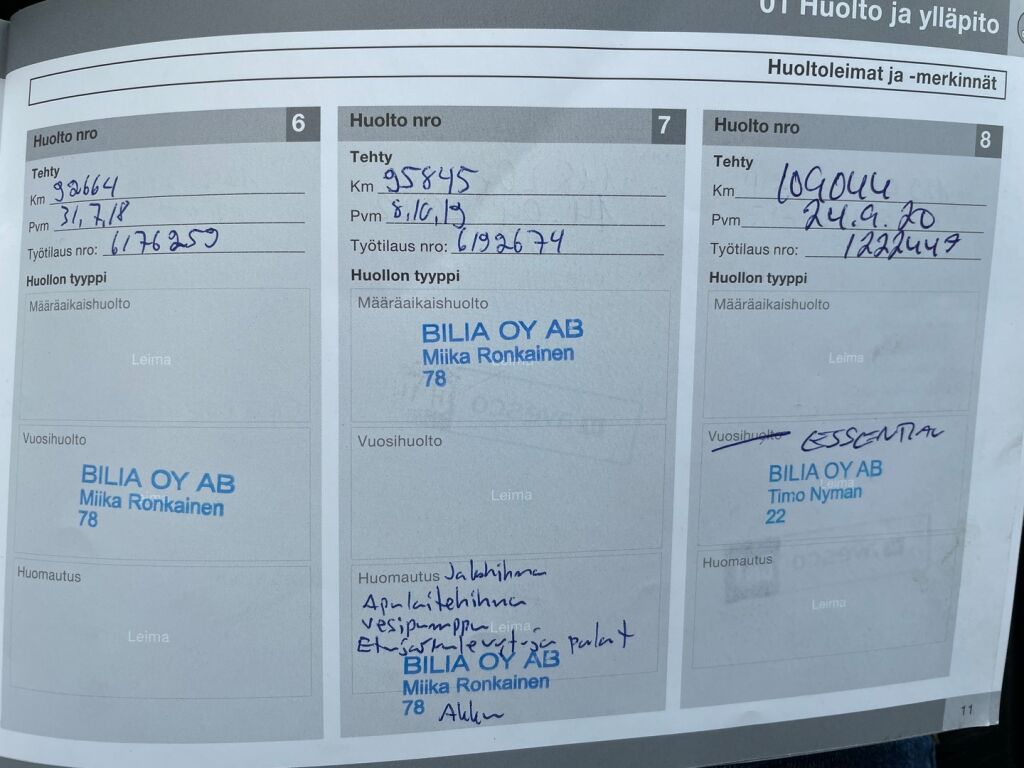 01 Huolto ja ylläpito
Huoltoleimat ja -merkinnät
Huolto nro 6
Tehty
Km 92664
Pvm 31,7,18
Työtilaus nro: 6176259
Huollon tyyppi
Määräaikaishuolto
Leima
Vuosihuolto
BILIA OY AB
Miika Ronkainen
78
Huomautus
Leima
Huolto nro 7
Tehty
Km 95845
Pvm 8,10,19
Työtilaus nro: 6192674
Huollon tyyppi
Määräaikaishuolto
BILIA OY AB
Miika Ronkainen
78
Vuosihuolto
Leima
Huomautus Jakohihna
Apulaitehihna
vesipumppu
Leima
Etujarrulevyt ja palat
BILIA OY AB
Miika Ronkainen
78 Akku
Huolto nro 8
Tehty
Km 109044
Pvm 24.9.20
Työtilaus nro: 1222447
Huollon tyyppi
Määräaikaishuolto
Leima
Vuosihuolto ESSENTIAL
BILIA OY AB
Leima
Timo Nyman
22
Huomautus
Leima
11